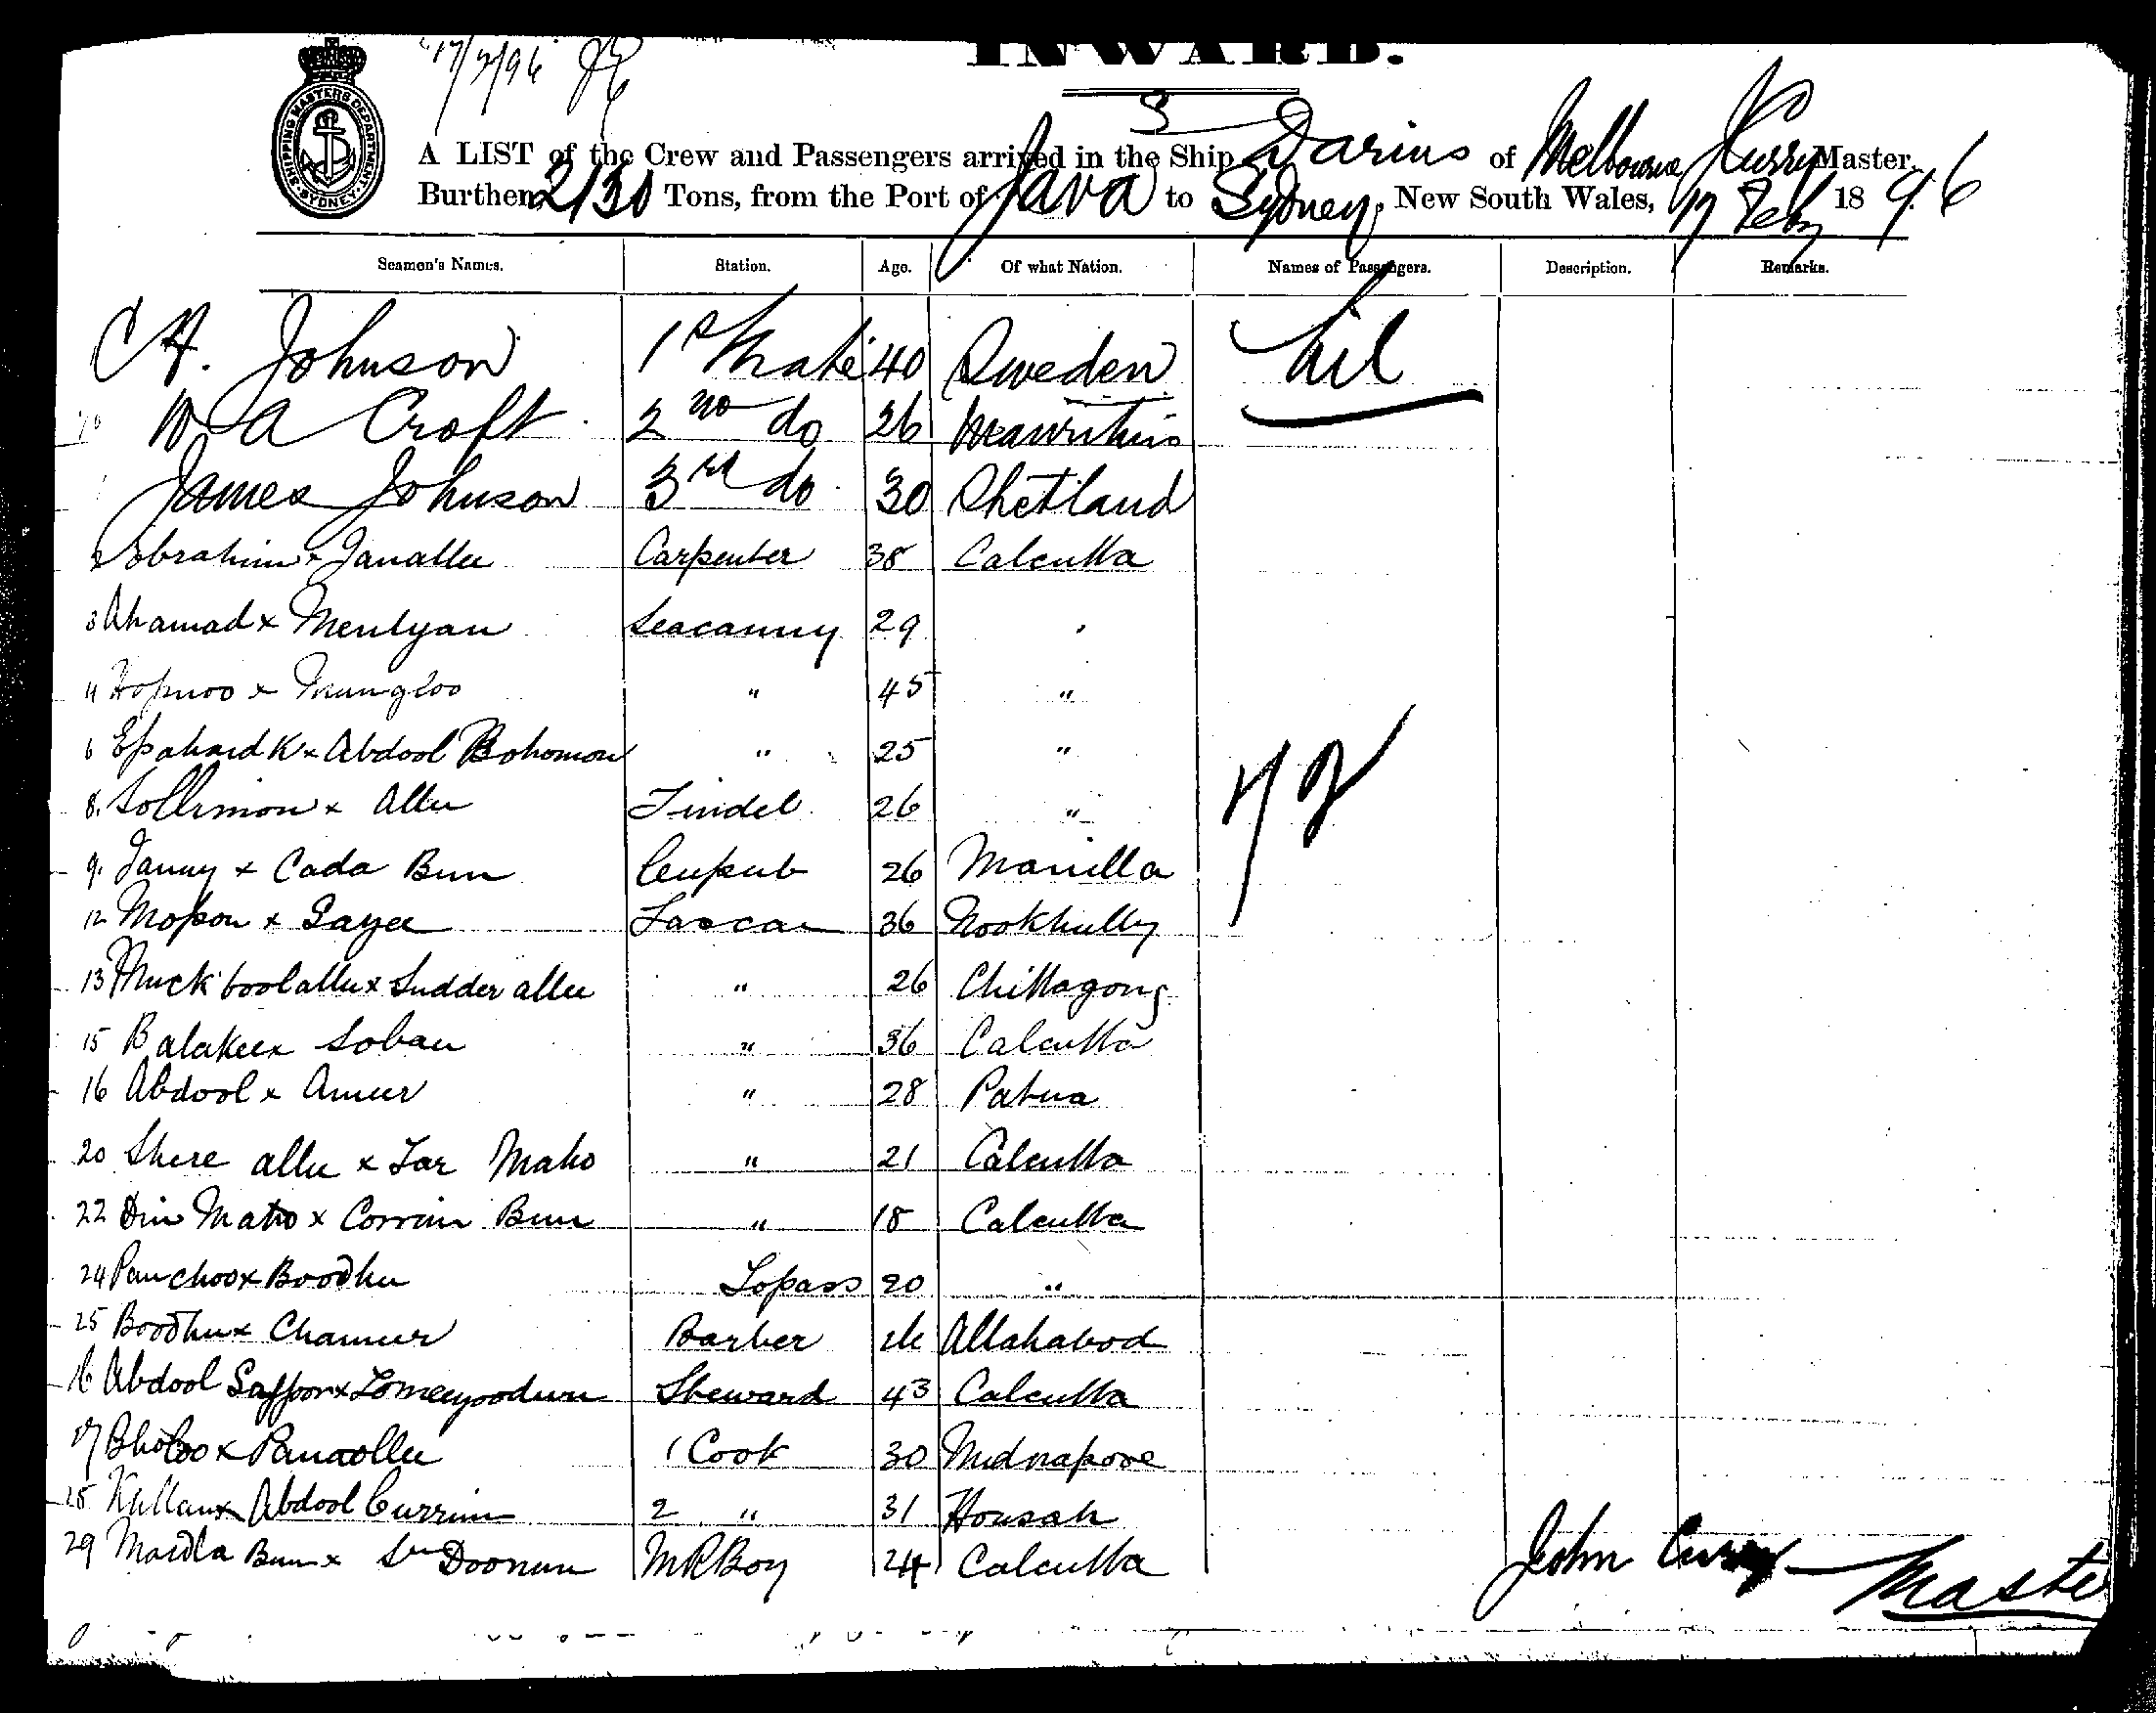 17/2/96
INWARD.
SHIPPING MASTERS DEPARTMENT SYDNEY
S
A LIST of the Crew and Passengers arrived in the Ship Darius of Melbourne J Curry Master,
Burthen 2130 Tons, from the Port of Java to Sydney, New South Wales, 17 Feby 1896
Seamen's Names. Station. Age. Of what Nation. Names of Passengers. Description. Remarks.
C A. Johnson 1st Mate 40 Sweden Nil
W A Croft 2nd do 26 Mauritius
James Johnson 3rd do 30 Shetland
2 Ebrahim x Janallee Carpenter 38 Calcutta
3 Ahamad x Menlyan Seacunny 29 "
4 Hopnoo x Mungloo " 45 "
6 Epahard K x Abdool Bohomon " 25 "
8. Sollimon x Allee Tindel 26 "
9. Janny x Cada Bun 26 Manilla
12 Mopon x Gayee Lascar 36 Nookhully
13 Muckboolallee x Sudder allee " 26 Chittagong
15 Balakee x Soban " 36 Calcutta
16 Abdool x Ameer " 28 Patna
20 Shere allee x Jar Maho " 21 Calcutta
22 Din Maho x Corrim Bun " 18 Calcutta
24 Panchoo x Boodhu Topass 20 "
25 Boodhu x Chameer Barber Allahabad
16 Abdool Gaffoor x Tomeeyoodeen Steward 43 Calcutta
17 Bholoo x Panaollee 1 Cook 30 Midnapore
28 Kallan x Abdool Currim 2 " 31 Housah
29 Bun x Doonun M R Boy 24 Calcutta
John Curry Master